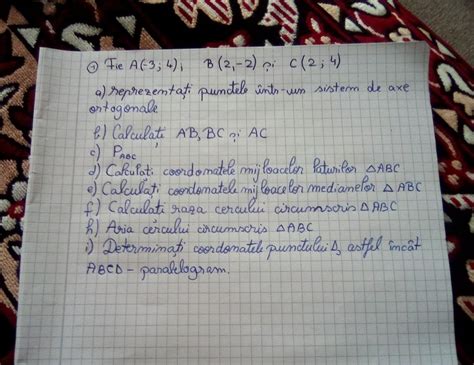 ① Fie A(-3; 4); B(2,-2) și C(2; 4)
a) reprezentați punctele într-un sistem de axe
ortogonale
b) Calculati AB, BC și AC
c) P_ABC
d) Calculati coordonatele mijloacelor laturilor △ABC
e) Calculați coordonatele mijloacelor medianelor △ABC
f) Calculati raza cercului circumscris △ABC
h) Aria cercului circumscris △ABC
i) Determinați coordonatele punctului D, astfel încât
ABCD - paralelogram.